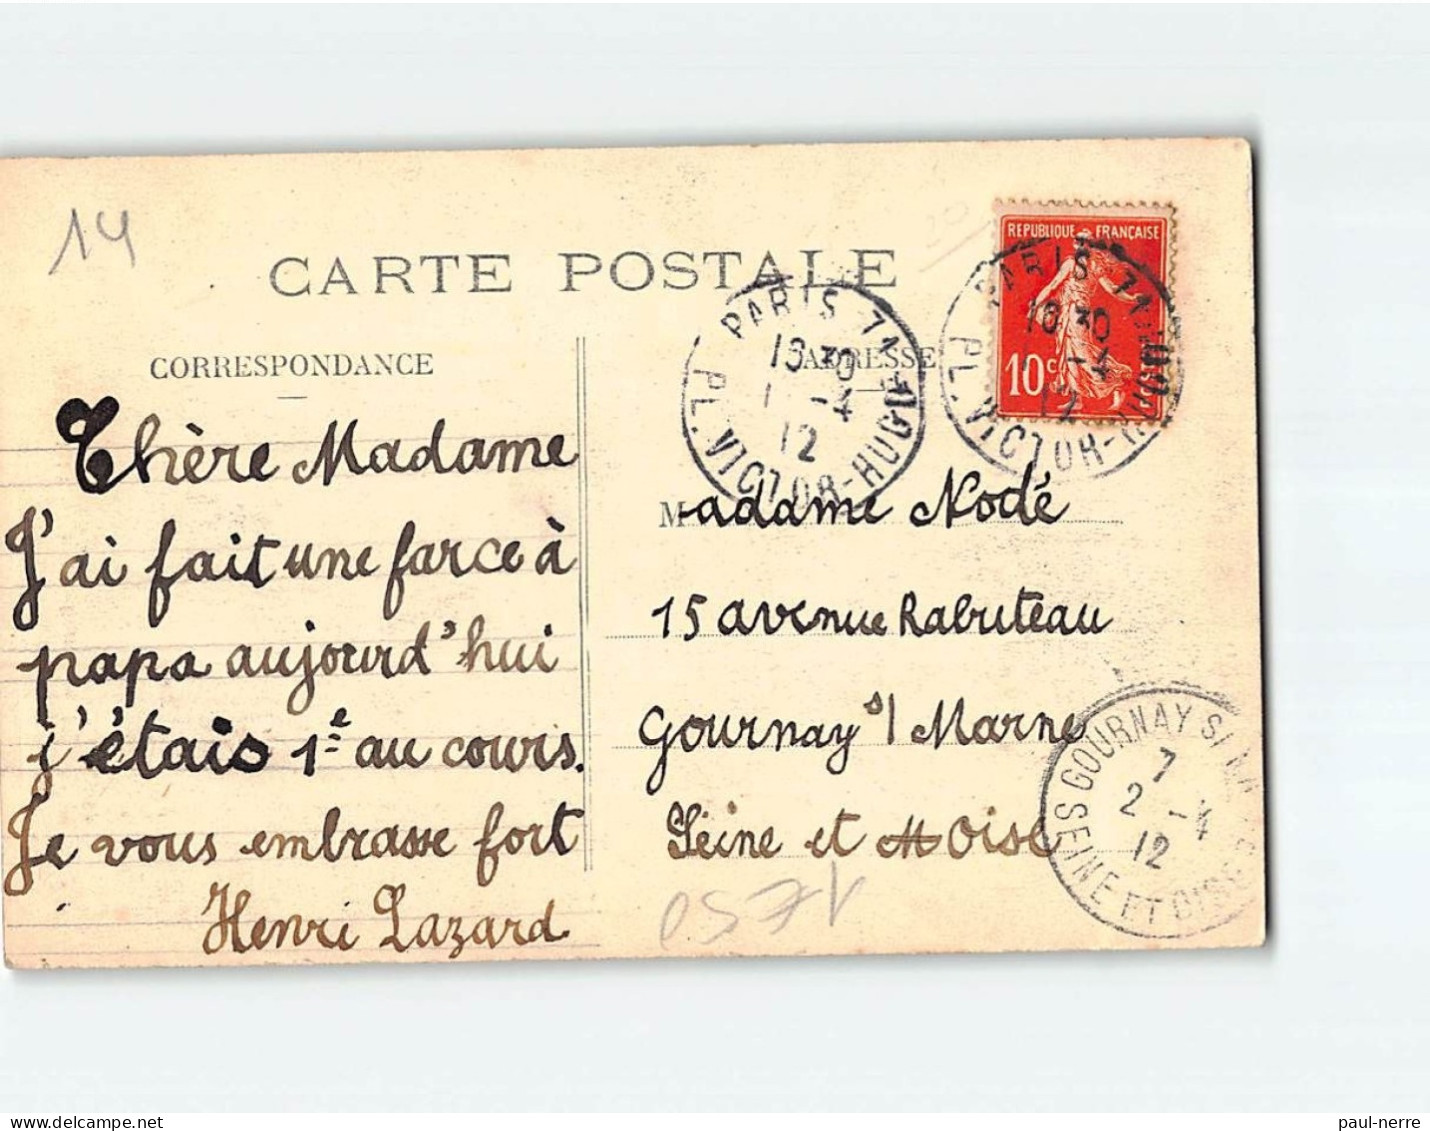 14
CARTE POSTALE
CORRESPONDANCE
ADRESSE
REPUBLIQUE FRANÇAISE
10c
PARIS 71
16 30
1 -4
12
PL. VICTOR-HUGO
PARIS 71
16 30
-4
12
PL. VICTOR-HUGO
Chère Madame
J'ai fait une farce à
papa aujourd'hui
j'étais 1e au cours.
Je vous embrasse fort
Henri Lazard
Madame Nodé
15 avenue Rabuteau
Gournay s/ Marne
Seine et Oise
GOURNAY S/
7
2 -4
12
SEINE ET OISE
paul-nerre